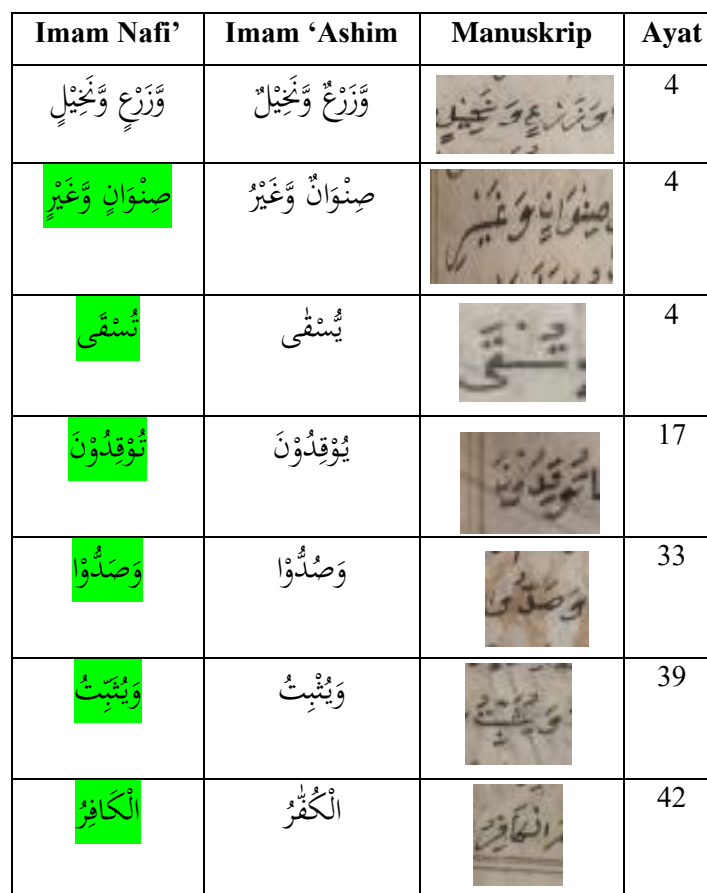 Imam Nafi’ Imam ‘Ashim Manuskrip Ayat
وَّزَرْعٍ وَّنَخِيْلٍ وَّزَرْعٌ وَّنَخِيْلٌ وَزَرْعٍ وَنَخِيْلٍ 4
صِنْوَانٍ وَّغَيْرِ صِنْوَانٌ وَّغَيْرُ صِنْوَانٍ وَغَيْرِ 4
تُسْقَى يُّسْقٰى تُسْقَى 4
تُوْقِدُوْنَ يُوْقِدُوْنَ تُوْقِدُوْنَ 17
وَصَدُّوْا وَصُدُّوْا 33
وَيُثَبِّتُ وَيُثْبِتُ وَيُثَبِّتُ 39
الْكَافِرُ الْكُفّٰرُ الْكَافِرُ 42